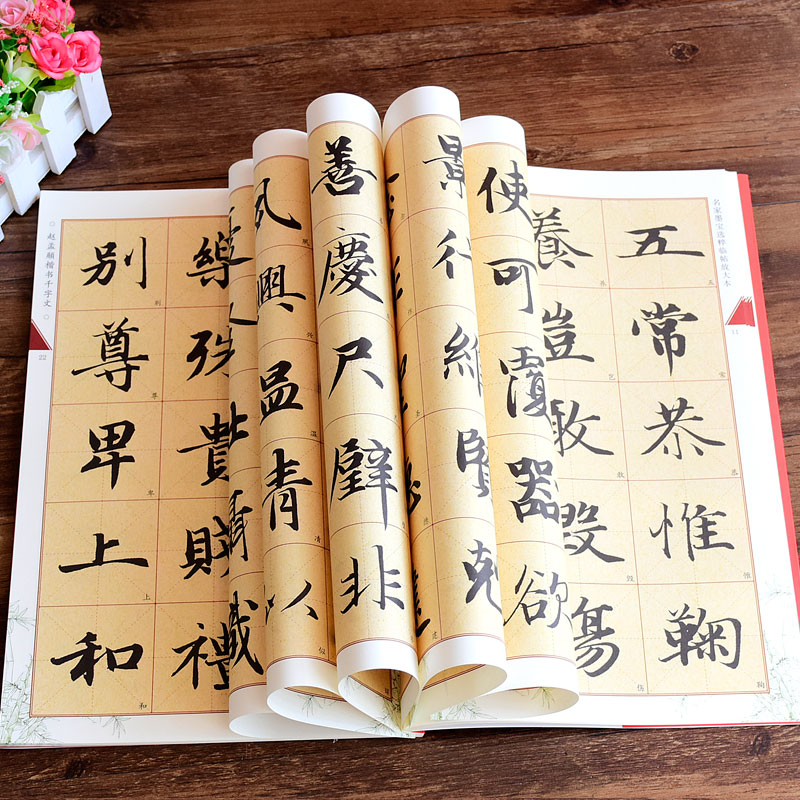 名家墨宝选粹临帖放大本
五常恭惟鞠
養豈敢毀傷
使可覆器欲
景行維賢克
善慶尺璧非
夙興溫清似
樂殊貴賤禮
別尊卑上和
赵孟頫楷书千字文
22